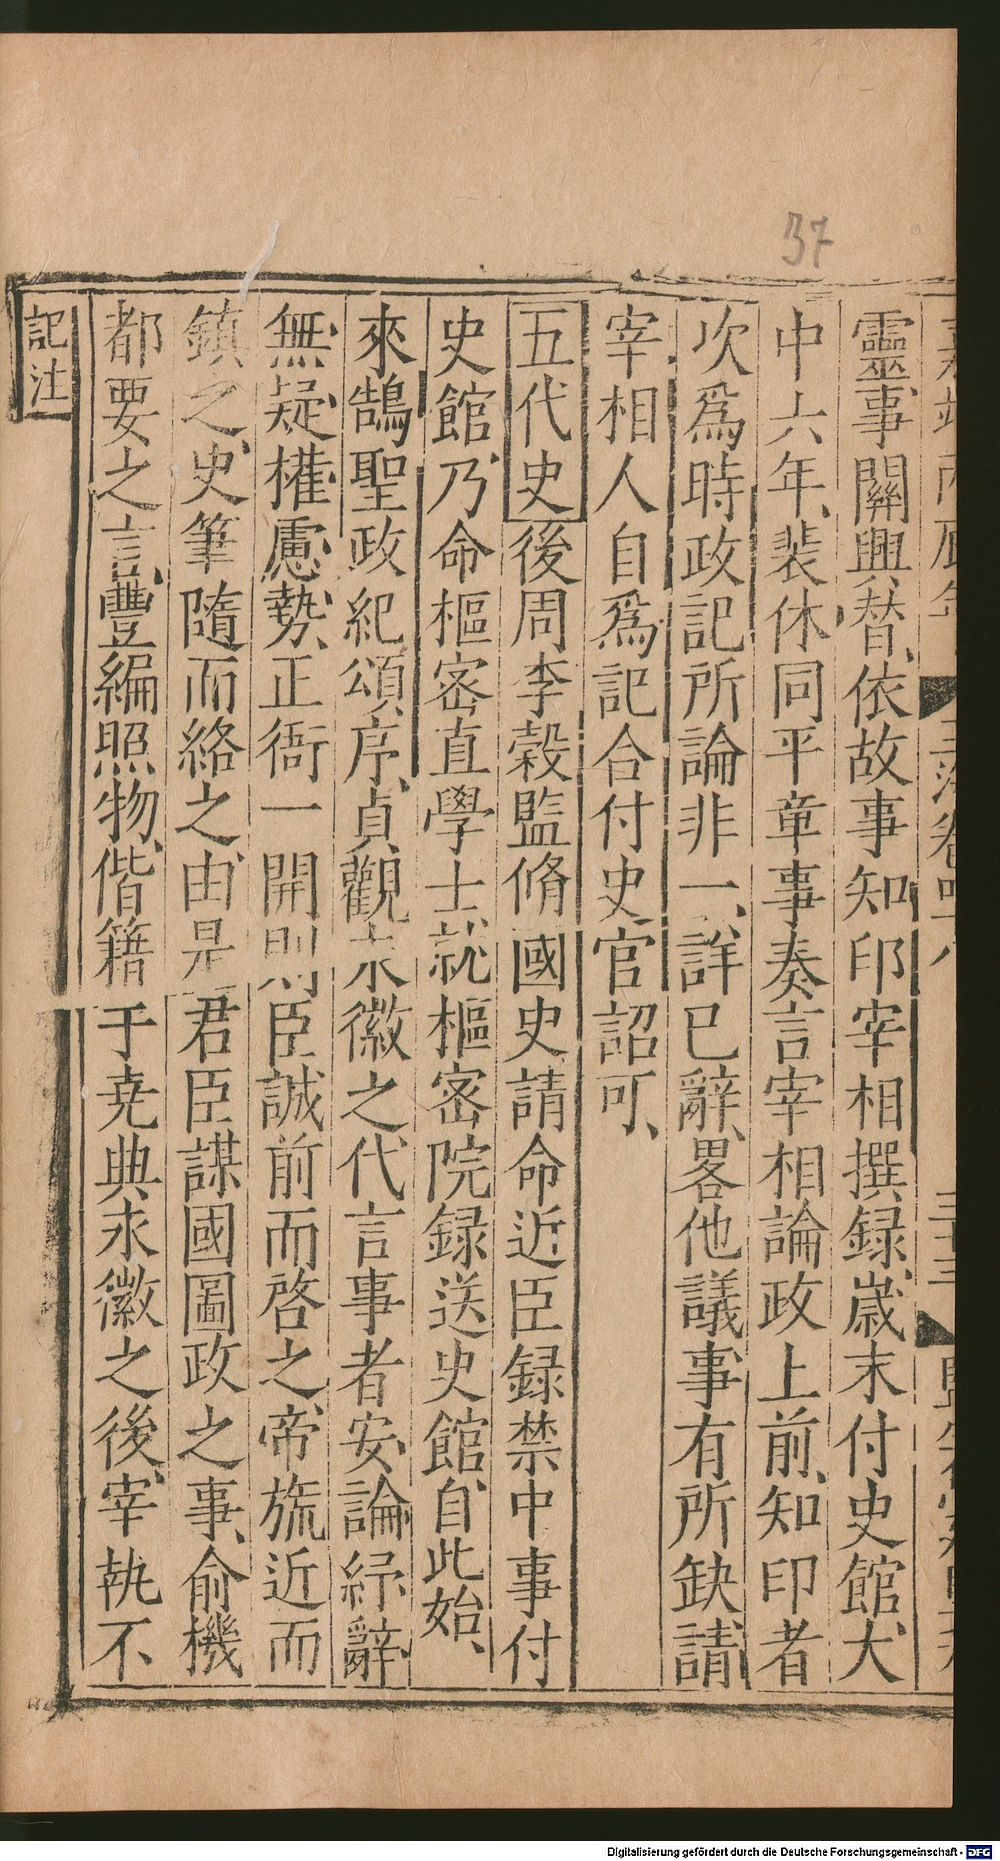 37
靈事關興替、依故事知印宰相撰録、歲末付史館、大
中六年、裴休同平章事奏言宰相論政上前、知印者
次爲時政記所論非一、詳已辭、畧他議事有所缺、請
宰相人自爲記合付史官詔可、
五代史後周李穀監脩國史、請命近臣録禁中事付
史館、乃命樞密直學士就樞密院録送史館、自此始、
來鵠聖政紀頌序、貞觀永徽之代、言事者安、論紓辭
無疑、權慮勢、正衙一開則臣誠前而啓之、帝旒近而
鎮之、史筆隨而絡之、由是君臣謀國圖政之事、俞機
都要之言、豐編照物、偕籍于尭典永徽之後、宰執不
記注
Digitalisierung gefördert durch die Deutsche Forschungsgemeinschaft - DFG